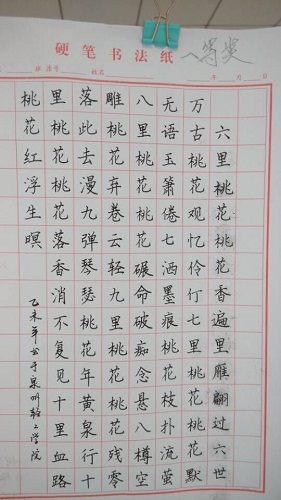 硬笔书法纸
等奖
班 座号 姓名 年 月 日
六里桃花桃花香遍里雁翩过六世
万古桃花观忆伶仃七里桃花桃花默
无语玉箫倦七洒墨痕七桃花枝扑流萤
八里桃花桃花碾命破桃痴花念悬八樽空
雕桃花弃卷云轻九里桃花桃花残零
落此去漫九弹琴瑟桃花年黄泉行十
里桃花桃花落香消不复见十里血路
桃花红浮生暝
乙未年书于泉州轻工学院